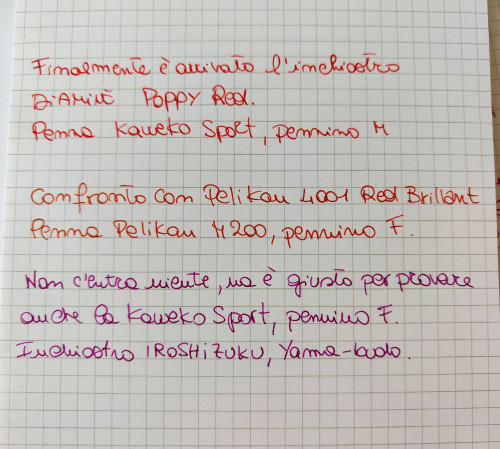 Finalmente è arrivato l'inchiostro
DiAMiNE POPPY Red.
Penna Kaweko Sport, pennino M
Confronto con Pelikan 4001 Red Brillant
Penna Pelikan M200, pennino F.
Non c'entra niente, ma è giusto per provare
anche la Kaweko Sport, pennino F.
Inchiostro IROSHiZUKU, Yama-budo.